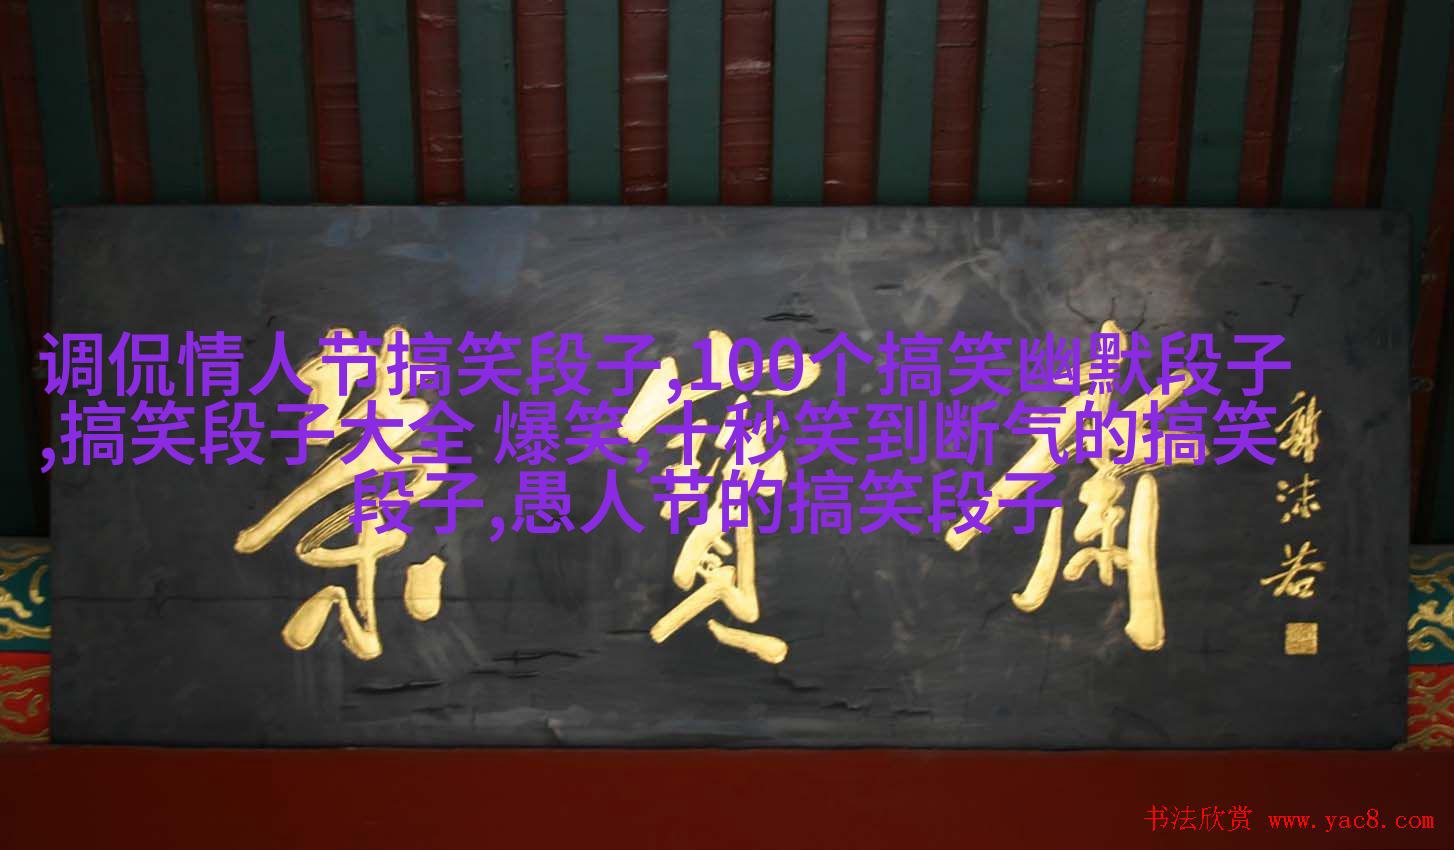 调侃情人节搞笑段子,100个搞笑幽默段子
,搞笑段子大全 爆笑,十秒笑到断气的搞笑
段子,愚人节的搞笑段子
榮寶齋
郭沫若
书法欣赏 www.yac8.com